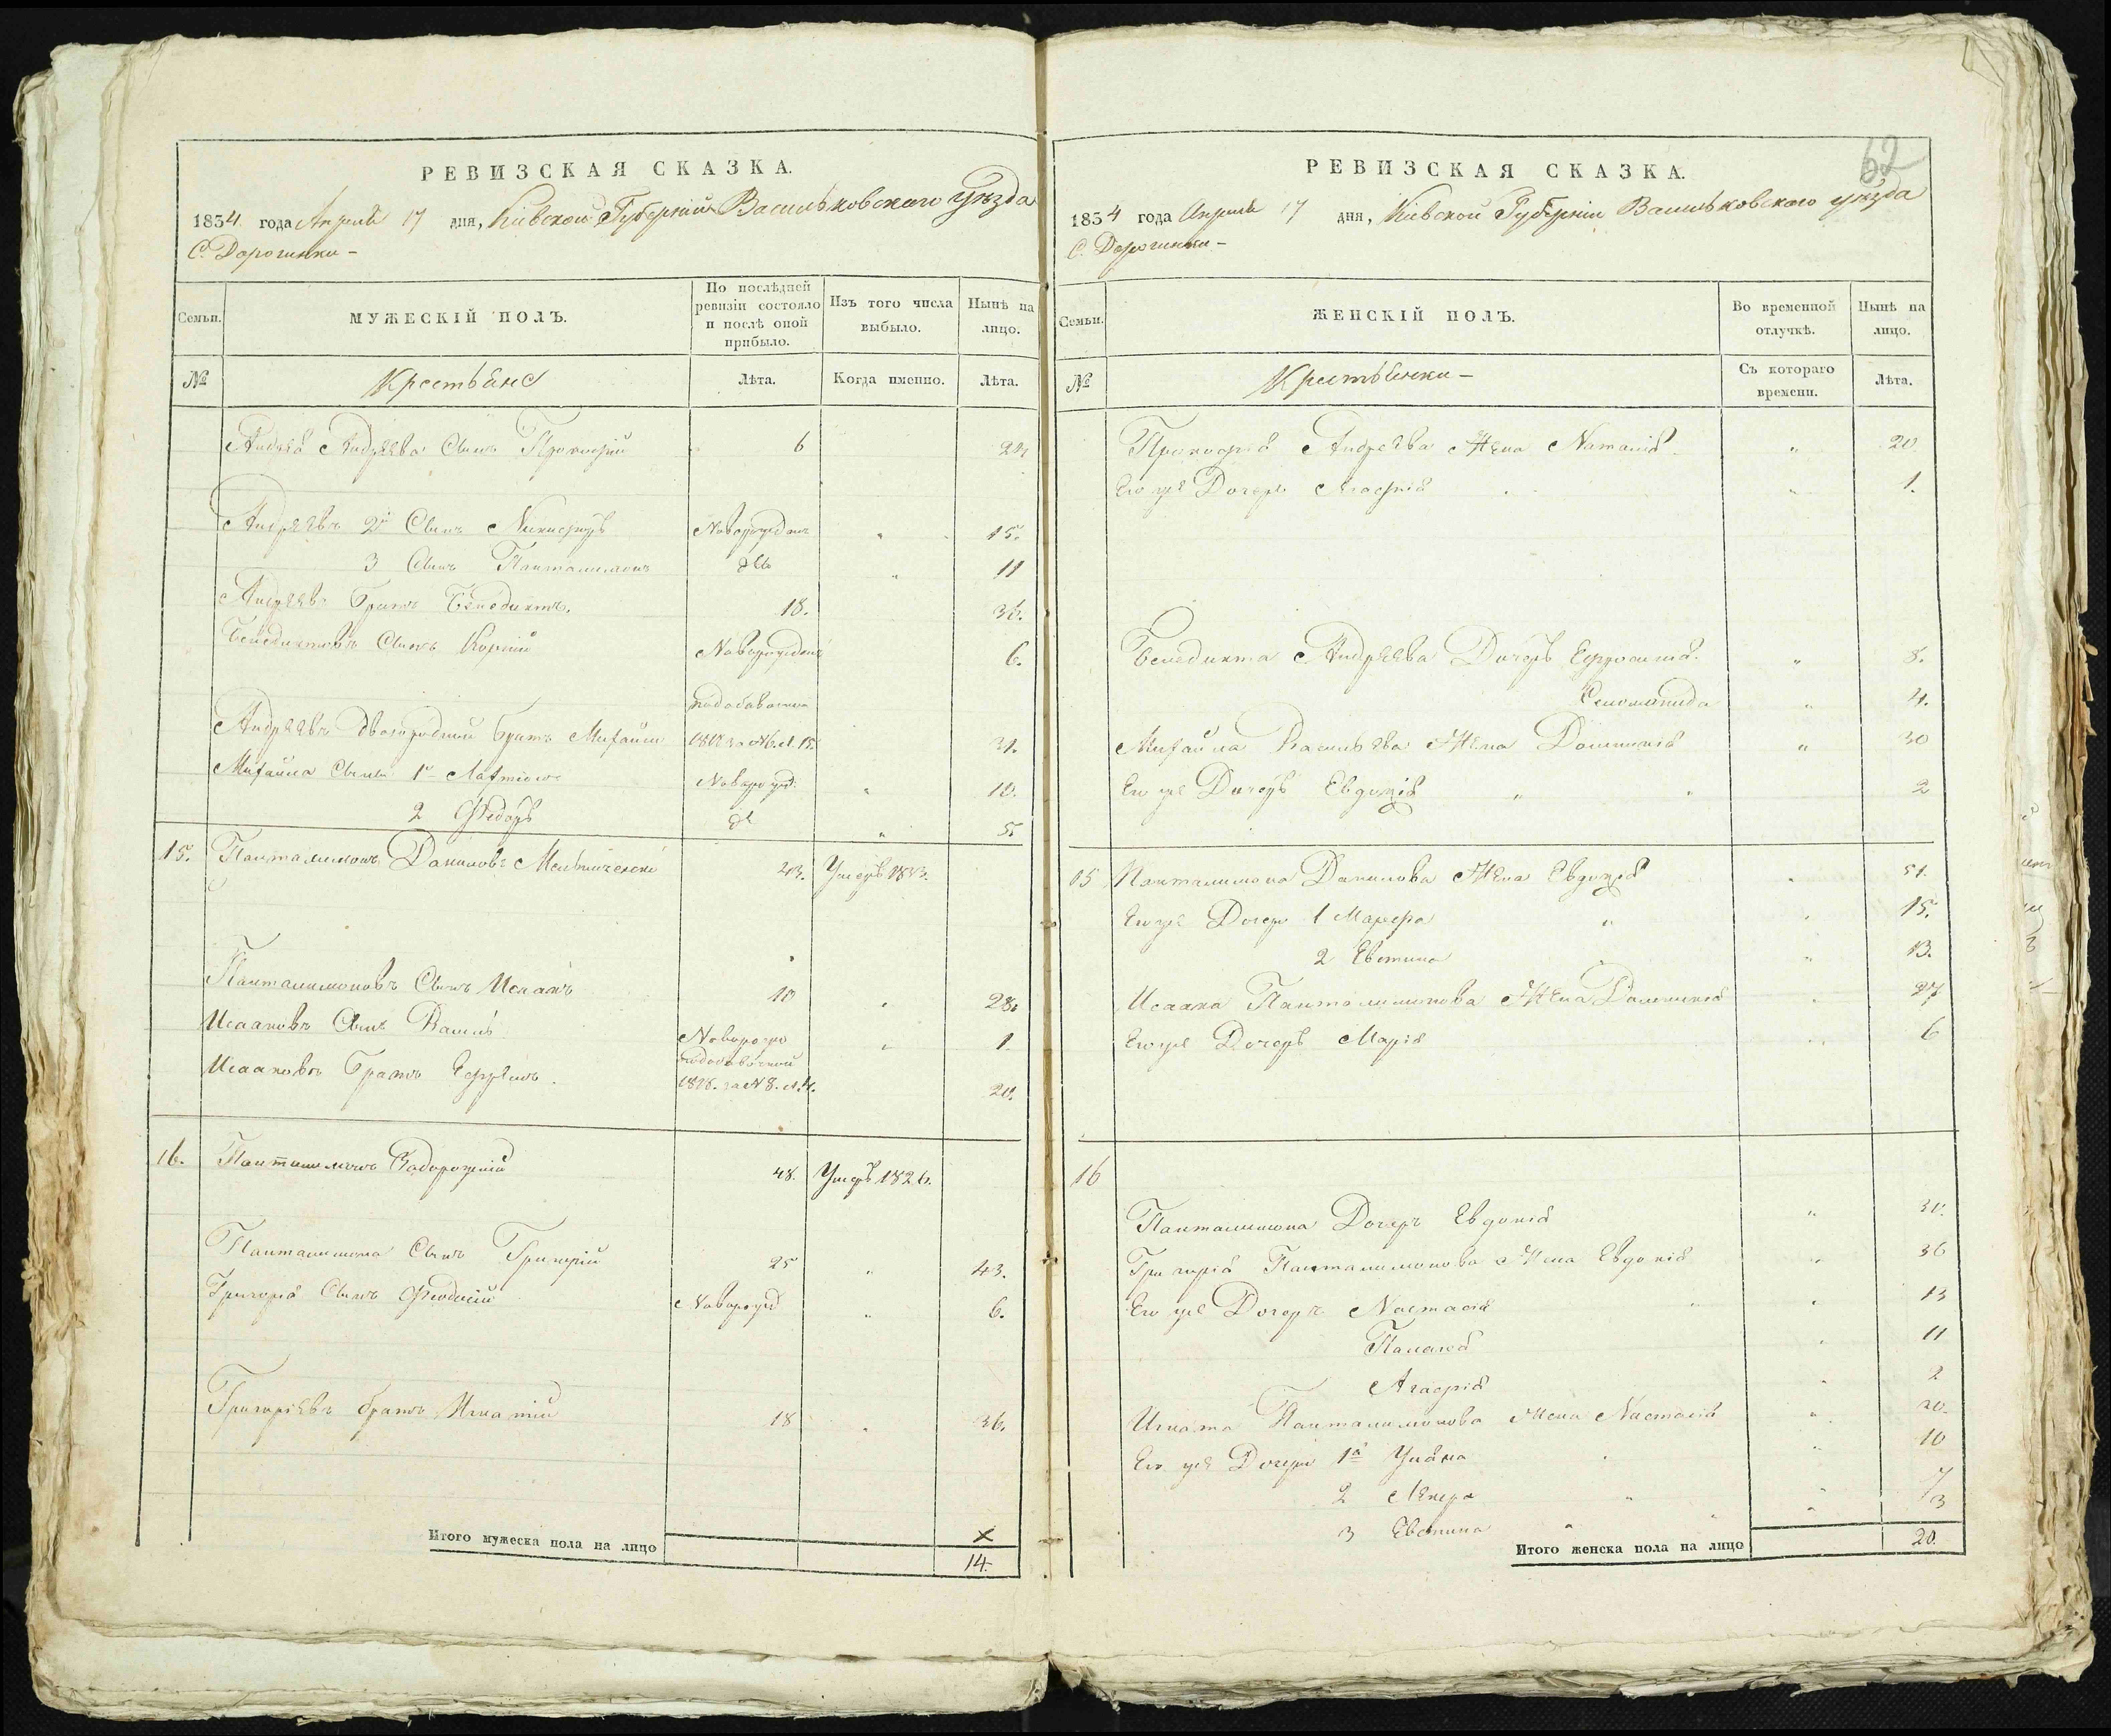 РЕВИЗСКАЯ СКАЗКА.
1834 года Апреля 17 дня, Кіевской Губерніи Васильковского уѣзда
С. Дорогинки –
Семьи.
МУЖЕСКІЙ ПОЛЪ.
По послѣдней ревизіи состояло и послѣ оной прибыло.
Изъ того числа выбыло.
Нынѣ на лицо.
№
Крестьяне
Лѣта.
Когда именно.
Лѣта.
Андрея Андреева Сынъ Прокофій 6
Андреевъ 2й Сынъ Никифоръ Новорожденъ " 15.
3 Сынъ Панталимонъ " 11
Андреевъ братъ Бенедиктъ. 18. 36.
Бенедиктовъ Сынъ Корній Новорожденъ 6.
Андреевъ двоюродный братъ Михайло 31.
Михайла Сынъ 1й Новорожд. " 10.
2 Федоръ " 5.
15. Панталимонъ Даниловъ 43. Умеръ 1833.
Панталимоновъ Сынъ Исаакъ 10 " 28.
Исааковъ Сынъ Василь Новорожд " 1.
Исааковъ братъ Ефремъ. 20.
16. Панталимонъ Задорожній 48. Умеръ 1826.
Панталимона Сынъ Григорій 25 " 43.
Григорія Сынъ Феодосій Новорожд " 6.
Григоріевъ братъ Игнатій 18 " 36.
Итого мужеска пола на лицо
14.
62
РЕВИЗСКАЯ СКАЗКА.
1834 года Апреля 17 дня, Кіевской Губерніи Васильковского уѣзда
С. Дорогинки –
Семьи.
ЖЕНСКІЙ ПОЛЪ.
Во временной отлучкѣ.
Нынѣ на лицо.
№
Крестьянки –
Съ котораго времени.
Лѣта.
Прокофія Андреева Жена Наталія " 20
Его же Дочерь Агафія " 1.
Бенедикта Андреева Дочерь Ефросинія. " 8.
" 4.
Михайла Васильева Жена Домникія " 30
Его же Дочерь Евдокія " 2
15 Панталимона Данилова Жена Евдокія " 51.
Его же Дочери 1 Марфа " 15.
2 Евгина " 13.
Исаака Панталимонова Жена Домникія " 27
Его же Дочерь Марія " 6
16
Панталимона Дочерь Евдокія "
Григорія Панталимонова Жена Евдокія " 36
Его же Дочерь Настасія " 13
Палагея " 11
Агафія " 2
Игната Панталимонова Жена Настасія "
Его же Дочери 1я Уляна " 10
2 " 7
3 Евгина " 3
Итого женска пола на лицо
20.